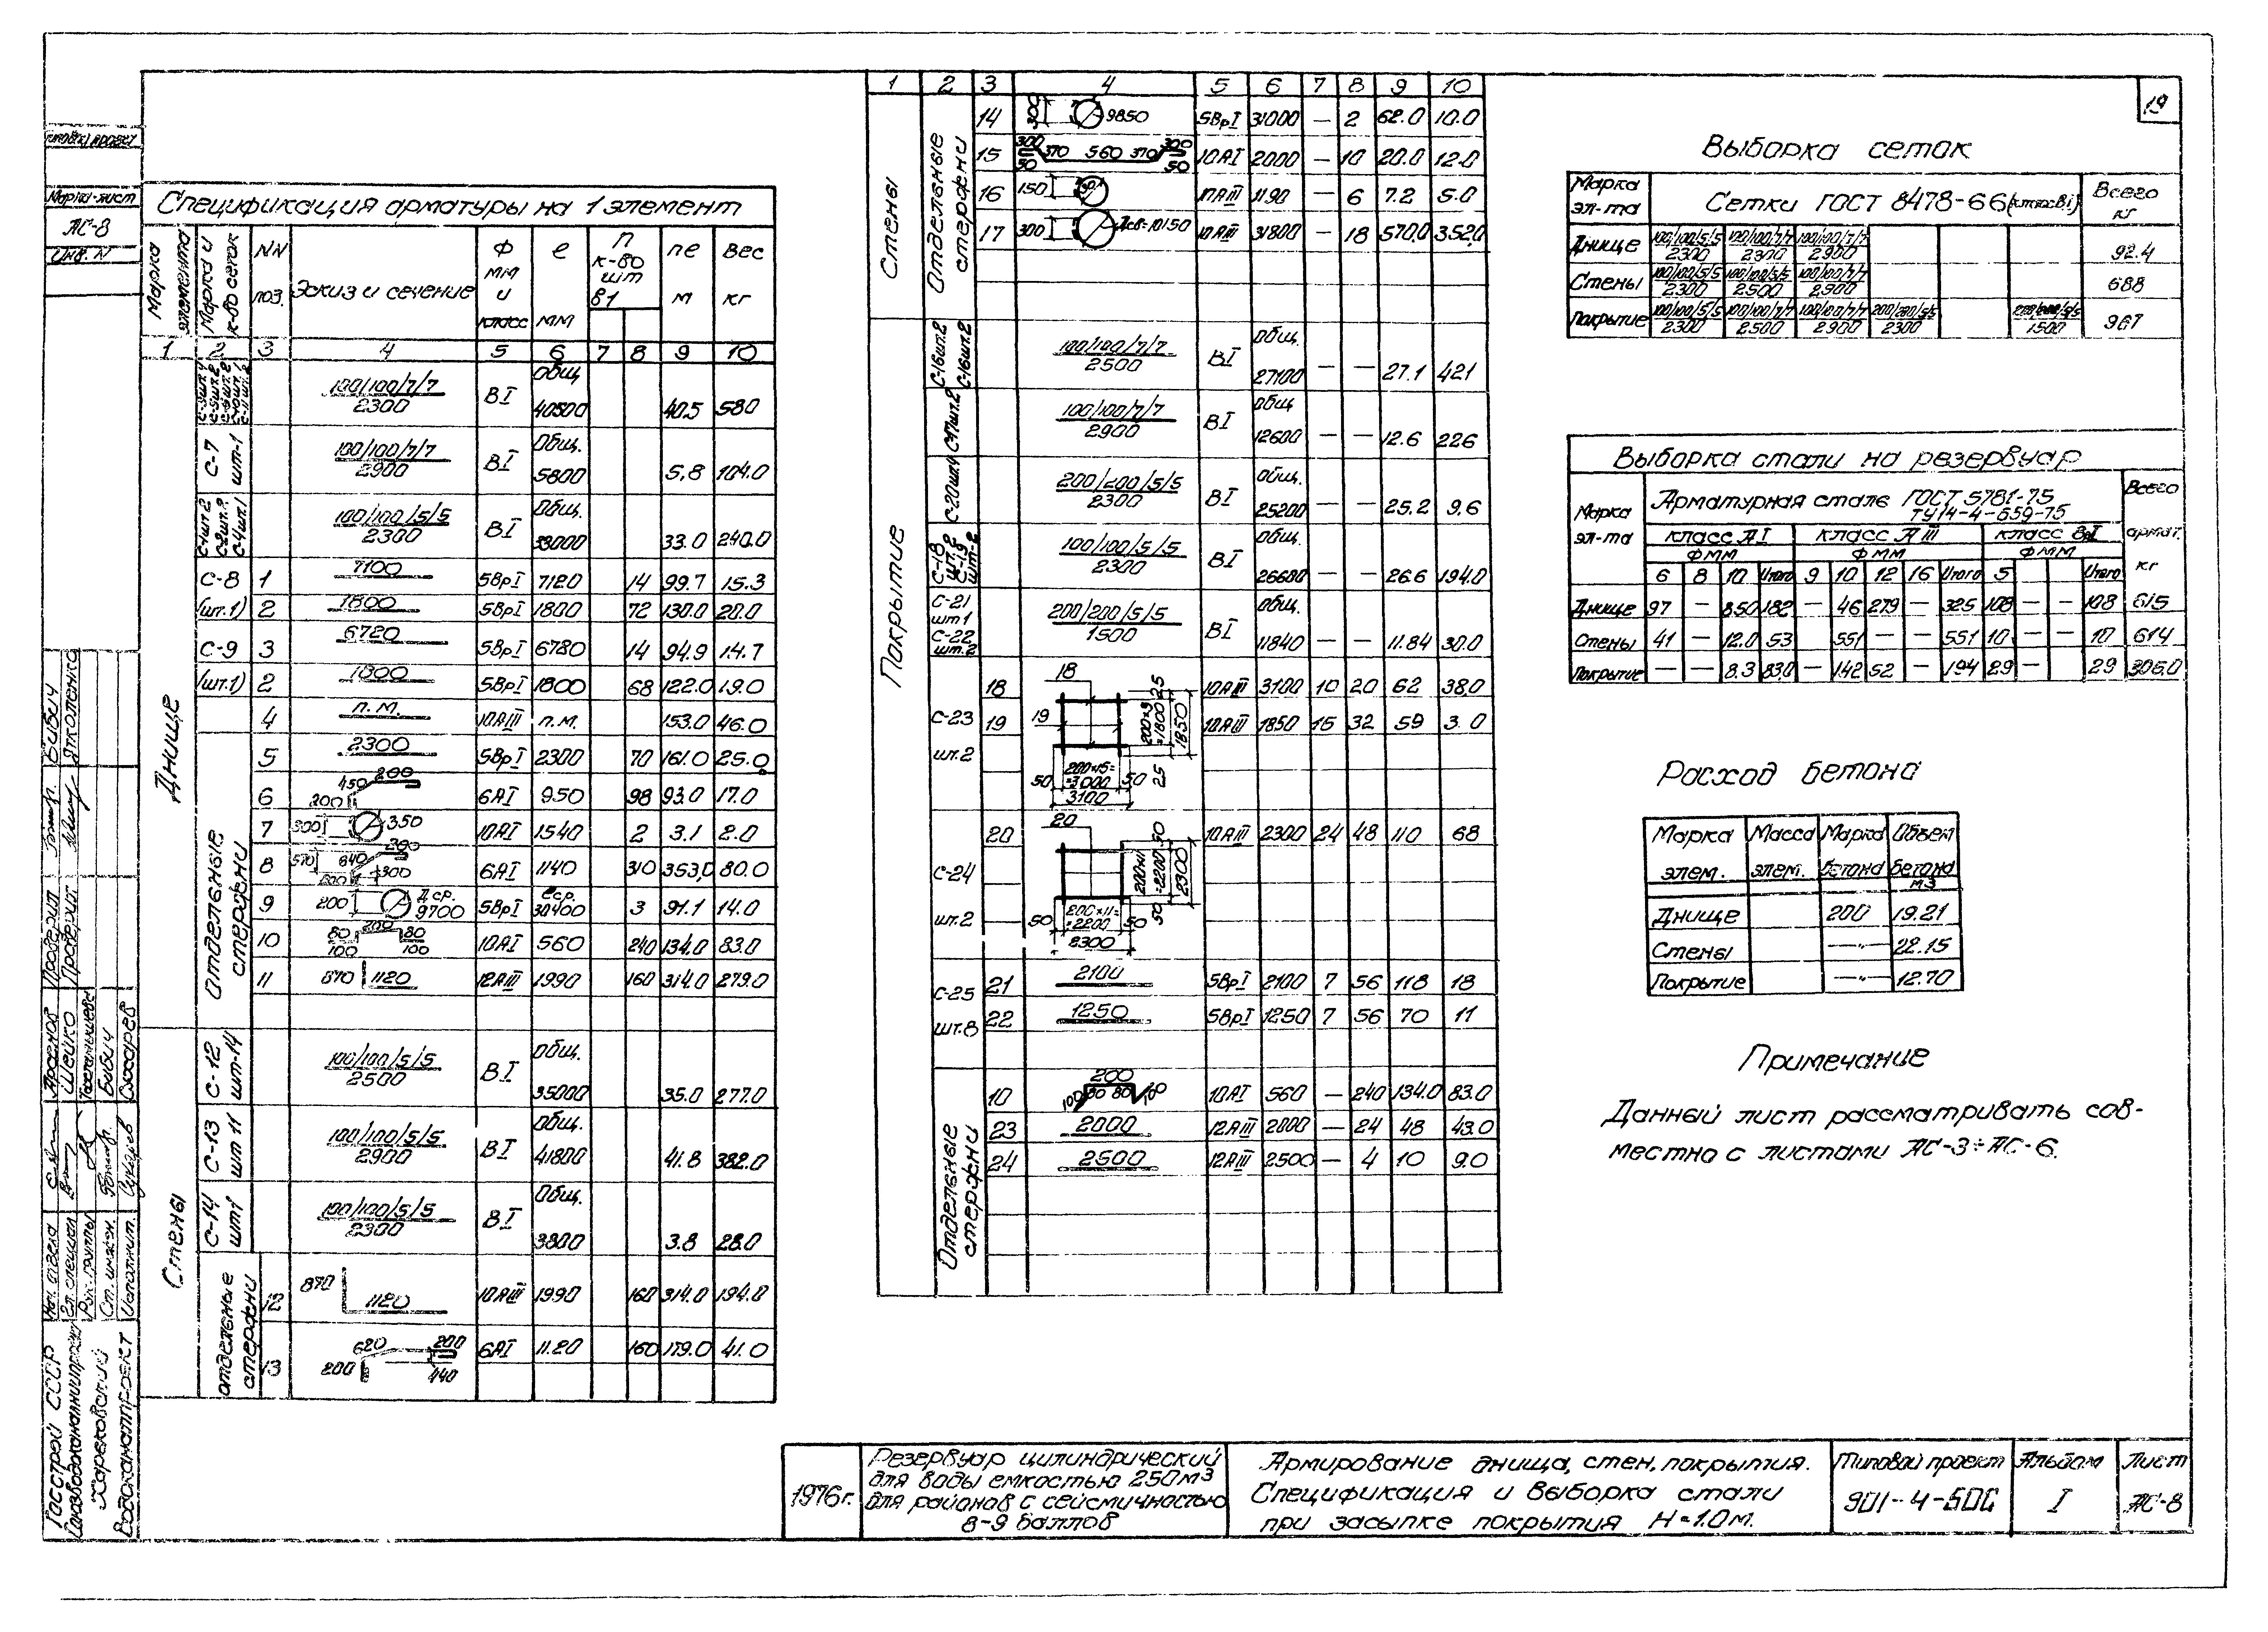 19
Типовой проект
Марка-лист
АС-8
Инв. N
Спецификация арматуры на 1 элемент
Марка элемента | Марка и к-во сеток | NN поз. | Эскиз и сечение | Ф мм и класс | е мм | п к-во шт в 1 | пе м | Вес кг
1 2 3 4 5 6 7 8 9 10
Днище
100/100/7/7 / 2300 ВI общ 40500 40.5 580
С-7 шт-1 100/100/7/7 / 2900 ВI Общ. 5800 5,8 104.0
С-1шт 2 С-2шт.2 С-4шт1 100/100/5/5 / 2300 ВI Общ. 33000 33.0 240.0
С-8 1 7100 5ВрI 7120 14 99.7 15.3
(шт.1) 2 1800 5ВрI 1800 72 130.0 20.0
С-9 3 6720 5ВрI 6780 14 94.9 14.7
(шт.1) 2 1800 5ВрI 1800 68 122.0 19.0
4 п.м. 10АIII п.м. 153.0 46.0
Отдельные стержни
5 2300 5ВрI 2300 70 161.0 25.0
6 450 200 200 6АI 950 98 93.0 17.0
7 300 350 10АI 1540 2 3.1 2.0
8 570 640 200 300 6АI 1140 310 353,0 80.0
9 200 Д ср. 9700 5ВрI еср. 30400 3 91.1 14.0
10 80 200 80 100 100 10АI 560 240 134.0 83.0
11 870 1120 12АIII 1990 160 314.0 279.0
Стены
С-12 шт-14 100/100/5/5 / 2500 ВI общ. 35000 35.0 277.0
С-13 шт 11 100/100/5/5 / 2900 ВI общ. 41800 41.8 382.0
С-14 шт1 100/100/5/5 / 2300 ВI Общ. 3800 3.8 28.0
отдельные стержни
12 870 1120 10АIII 1990 160 314.0 194.0
13 620 200 200 440 6АI 1120 160 179.0 41.0
1 2 3 4 5 6 7 8 9 10
Стены
Отдельные стержни
14 300 9850 5ВрI 31000 — 2 62.0 10.0
15 300 50 370 560 370 300 50 10АI 2000 — 10 20.0 12.0
16 150 1190 — 6 7.2 5.0
17 300 Дсв=10150 10АIII 31800 — 18 570,0 352,0
Покрытие
100/100/7/7 / 2500 ВI общ. 27100 — — 27.1 421
100/100/7/7 / 2900 ВI общ 12600 — — 12.6 226
С-20шт.4 200/200/5/5 / 2300 ВI общ. 25200 — — 25.2 9.6
С-18 шт.2 С-19 шт-2 100/100/5/5 / 2300 ВI общ. 26600 — — 26.6 194.0
С-21 шт1 С-22 шт.2 200/200/5/5 / 1500 ВI общ. 11840 — — 11.84 30.0
С-23 шт.2
18 10АIII 3100 10 20 62 38.0
19 10АIII 1850 16 32 59 3.0
18 19 50 200×15= =3000 50 3100 25 200×9 =1800 1850 25
С-24 шт.2
20 10АIII 2300 24 48 110 68
20 50 200×11= =2200 50 2300 50 200×11 =2200 2300 50
С-25 21 2100 5ВрI 2100 7 56 118 18
шт.8 22 1250 5ВрI 1250 7 56 70 11
Отдельные стержни
10 200 100 80 80 100 10АI 560 — 240 134.0 83.0
23 2000 12АIII 2000 — 24 48 43.0
24 2500 12АIII 2500 — 4 10 9.0
Выборка сеток
Марка эл-та | Сетки ГОСТ 8478-66 (класс ВI) | Всего кг
Днище 100/100/5/5 / 2300 100/100/7/7 / 2300 100/100/7/7 / 2900 92.4
Стены 100/100/5/5 / 2300 100/100/5/5 / 2500 100/100/7/7 / 2900 688
Покрытие 100/100/5/5 / 2300 100/100/7/7 / 2500 100/100/7/7 / 2900 200/200/5/5 / 2300 200/200/5/5 / 1500 967
Выборка стали на резервуар
Марка эл-та | Арматурная сталь ГОСТ 5781-75 ТУ 14-4-659-75 | Всего армат. кг
класс АI класс АIII класс ВрI
Ф мм Ф мм Ф мм
6 8 10 Итого 9 10 12 16 Итого 5 Итого
Днище 97 — 85.0 182 — 46 279 — 325 108 — — 108 615
Стены 41 — 12.0 53 551 — — 551 10 — — 10 614
Покрытие — — 8.3 83.0 — 142 52 — 194 29 — 29 306.0
Расход бетона
Марка элем. | Масса элем. | Марка бетона | Объем бетона м3
Днище 200 19.21
Стены —"— 22.15
Покрытие —"— 12.70
Примечание
Данный лист рассматривать сов-
местно с листами АС-3÷АС-6.
Госстрой СССР
Союзводоканалниипроект
Харьковский
Водоканалпроект
Нач. отдела Арсенов
Гл. специал Шейко
Рук. группы
Ст. инжен. Бибич
Исполнит.
Проверил Бибич
Проверил Ятколенко
1976г.
Резервуар цилиндрический
для воды емкостью 250м3
для районов с сейсмичностью
8-9 баллов
Армирование днища, стен, покрытия.
Спецификация и выборка стали
при засыпке покрытия Н=1.0м.
Типовой проект
901-4-50С
Альбом
I
Лист
АС-8